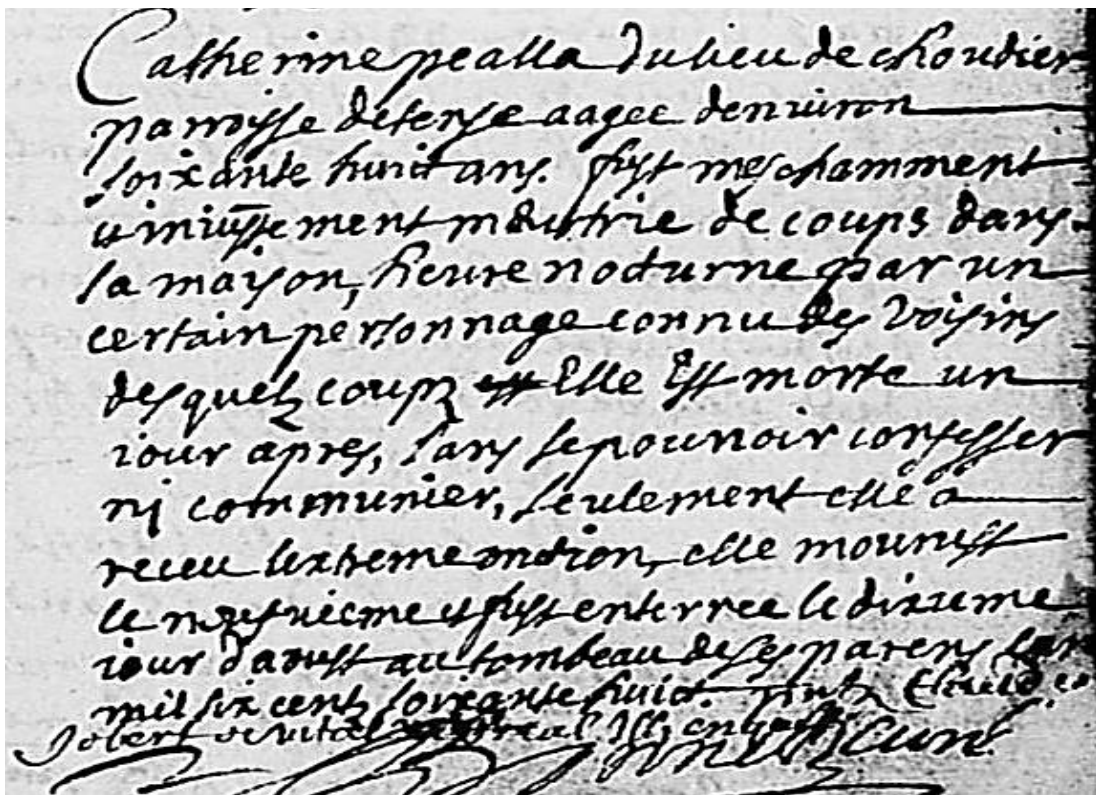 Catherine pealla du lieu de choudier
parroisse de terse aagee denuiron
soixante huict ans. fust meschamment
et iniustement mûrtrie de coups dans
sa maison, heure nocturne par un
certain personnage connu des Voisins
desquelz coupz Elle Est morte un
iour apres, sans se pouuoir confesser
ni communier, seulement elle a
receu lextreme onction, elle mourust
le neufuieme et fust enterree le dixieme
iour daoust au tombeau de ses parens Lan
mil six cent soixante huict
Jobert de vital
Curé